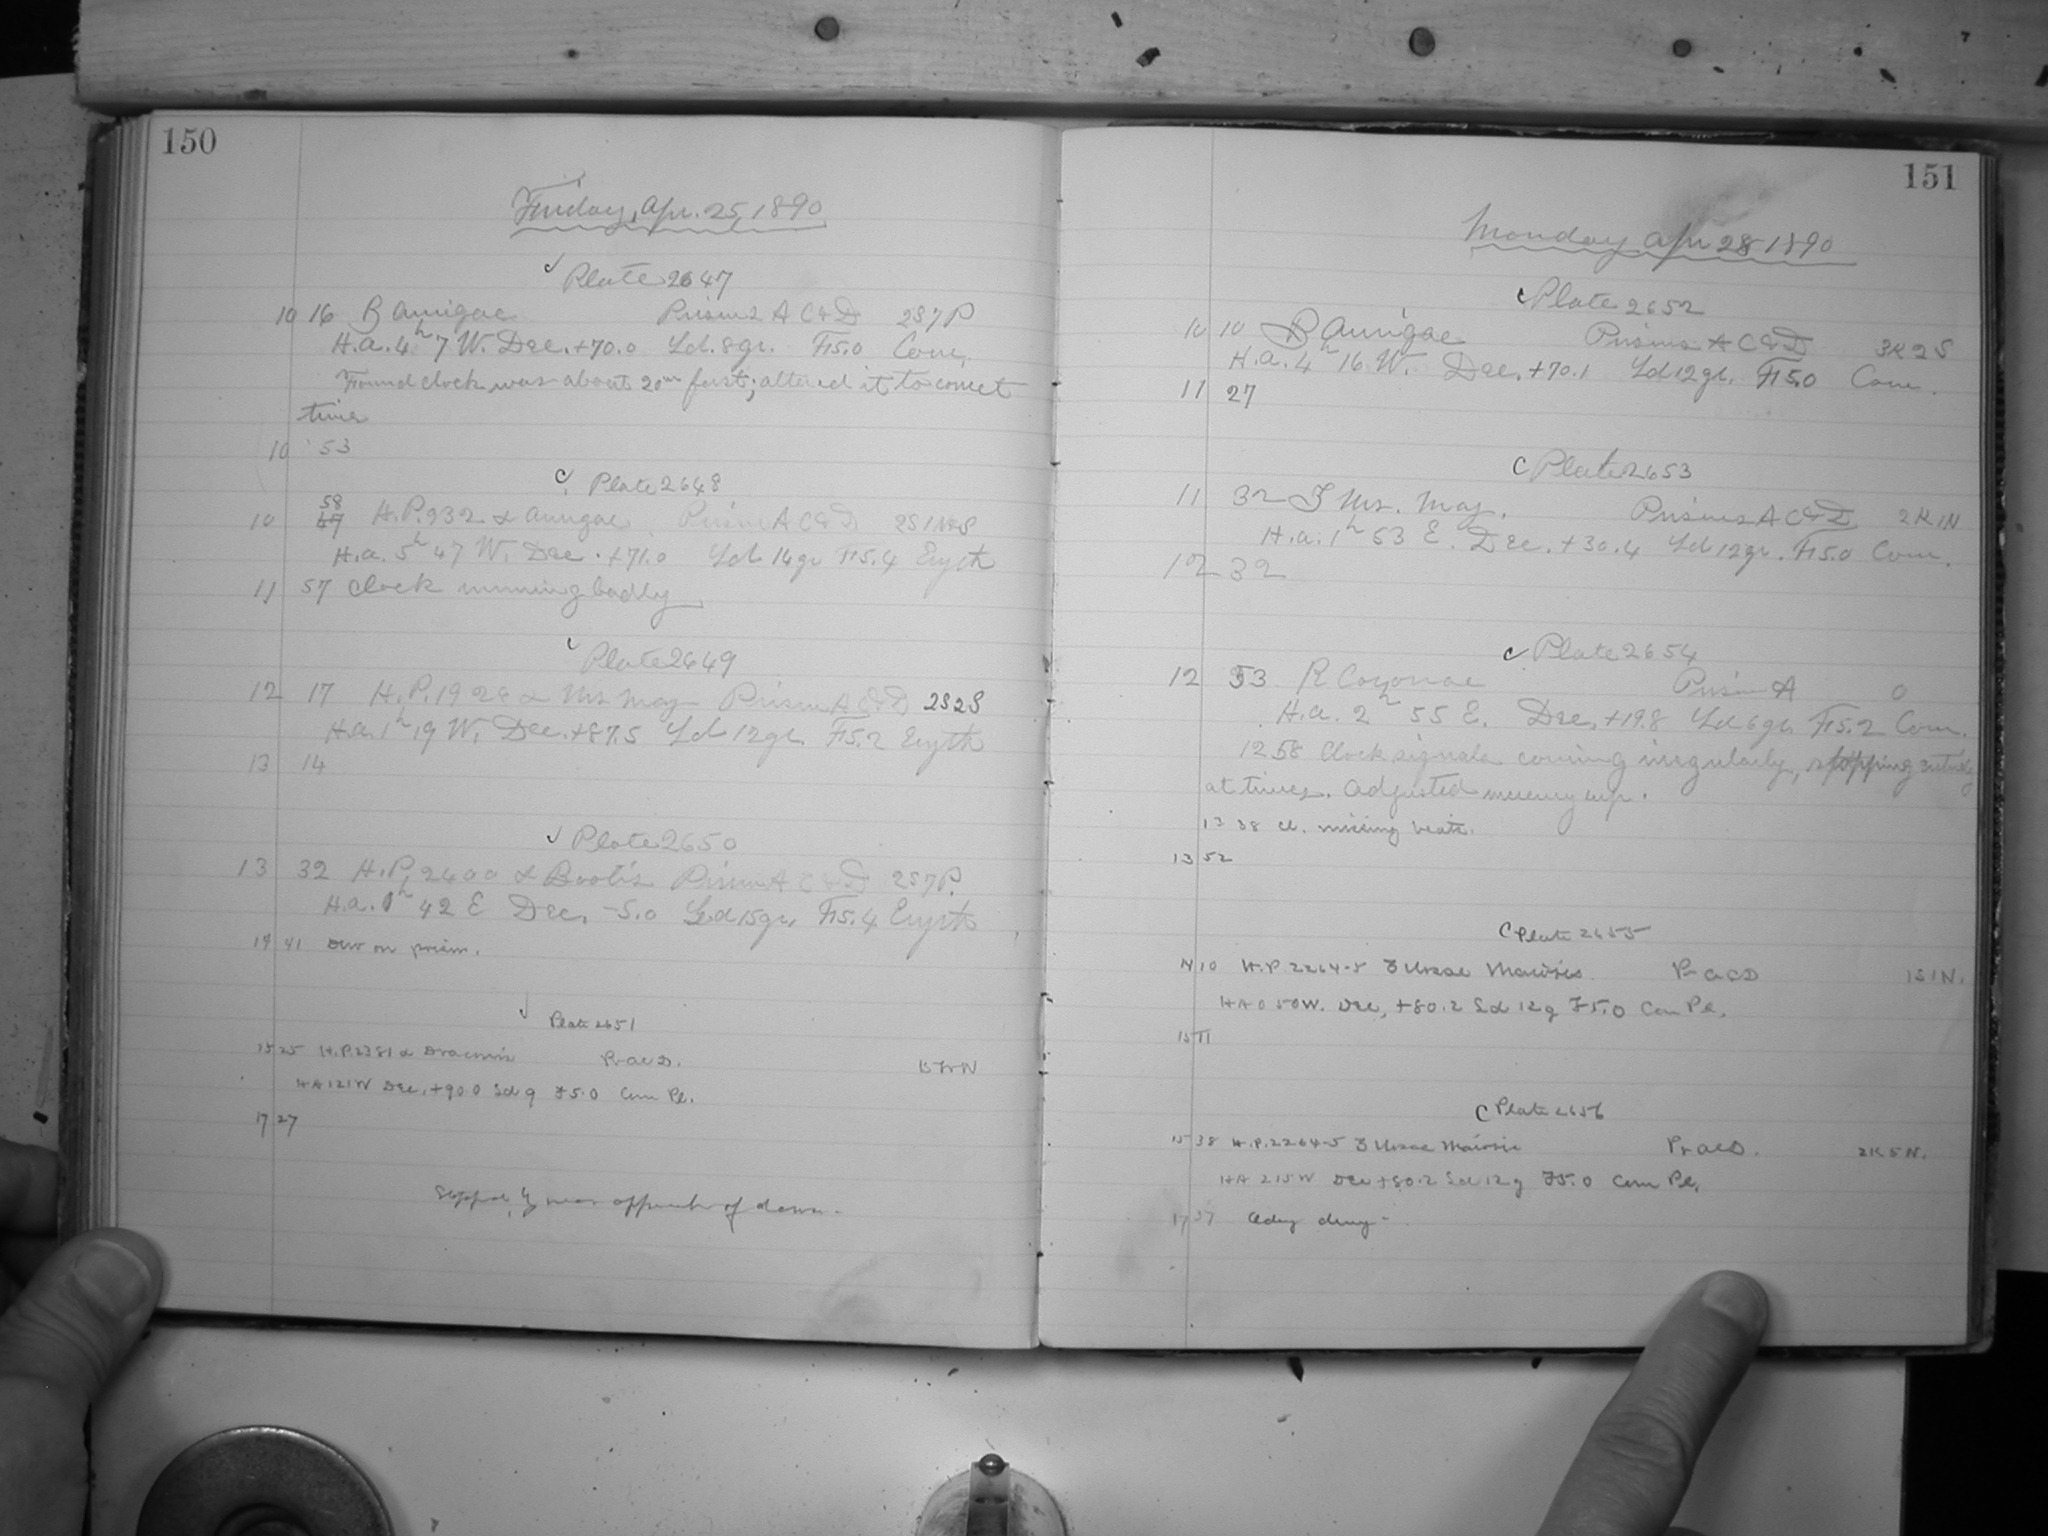 150
Friday, Apr. 25, 1890
Plate 2647
10 16 β Aurigae Prisms A C & D 2S7P
H.a. 4h 7 W. Dec. +70.0 Ld. 8gr. F15.0 Com.
Found clock was about 20m fast; altered it to correct
time
10 53
Plate 2648
58
10 47 H.P. 932 α Aurigae Prism A C & D
H.a. 5h 47 W. Dec. +71.0 Ld 14gr F15.4 Eryth
11 57 Clock running badly
Plate 2649
12 17 H.P. 1928 α Urs Maj Prism A C & D 2S2S
H.a. 1h 19 W. Dec. +87.5 Ld 12gr. F15.2 Eryth
13 14
Plate 2650
13 32 H.P. 2400 α Bootis Prism A C & D 2S7P.
H.a. 0h 42 E Dec. -5.0 Ld 15gr. F15.4 Eryth
14 41 Dew on prism.
Plate 2651
15 25 H.P. 2381 α Draconis Pr a c D.
HA 1 21 W Dec. +90.0 Ld g F5.0 Com Pl.
17 27
Stopped by near approach of dawn.
151
Monday Apr 28 1890
Plate 2652
10 10 β Aurigae Prisms A C & D 3K2S
H.a. 4h 16 W. Dec. +70.1 Ld 12gr. F15.0 Com.
11 27
Plate 2653
11 32 Urs. Maj. Prisms A C & D 2K1N
H.a. 1h 53 E. Dec. +30.4 Ld 12gr. F15.0 Com.
12 32
Plate 2654
12 53 R Coronae Prism A 0
H.a. 2h 55 E. Dec. +19.8 Ld 6gr. F15.2 Com.
12 58 Clock signals coming irregularly, stopping entirely
at times. Adjusted mercury cup.
13 38 cl. missing beats.
13 52
Plate 2655
14 10 H.P. 2264-5 ζ Ursae Majoris Pr a c D 1S1N.
HA 0 50 W. Dec, +80.2 Ld 12g F5.0 Com Pl.
15 11
Plate 2656
15 38 H.P. 2264-5 ζ Ursae Majoris Pr a c D. 2K5N.
HA 2 15 W Dec +80.2 Ld 12g F5.0 Com Pl.
17 37